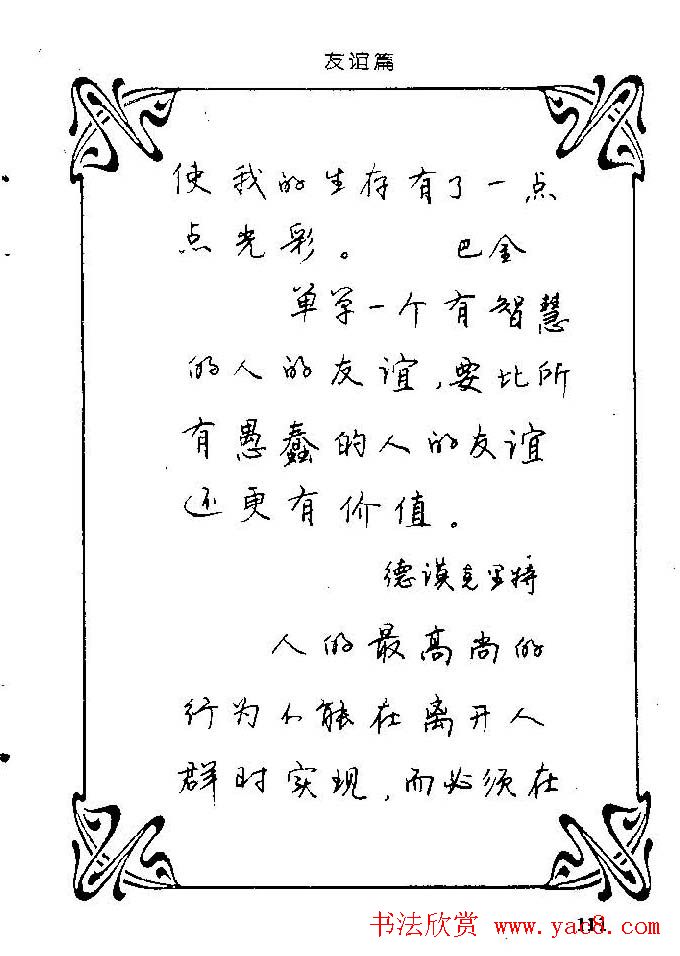 友谊篇
使我的生存有了一点
点光彩。 巴金
单单一个有智慧
的人的友谊,要比所
有愚蠢的人的友谊
还更有价值。
德谟克里特
人的最高尚的
行为不能在离开人
群时实现,而必须在
111
书法欣赏 www.yac8.com